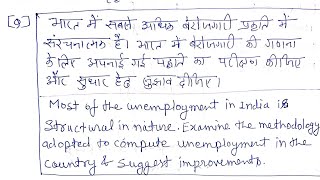 [Q] भारत में सबसे अधिक बेरोजगारी प्रकृति में
संरचनात्मक है। भारत में बेरोजगारी की गणना
के लिए अपनाई गई पद्धति का परीक्षण कीजिए
और सुधार हेतु सुझाव दीजिए)
Most of the unemployment in India is
Structural in nature. Examine the methodology
adopted to compute unemployment in the
Country & Suggest improvements.